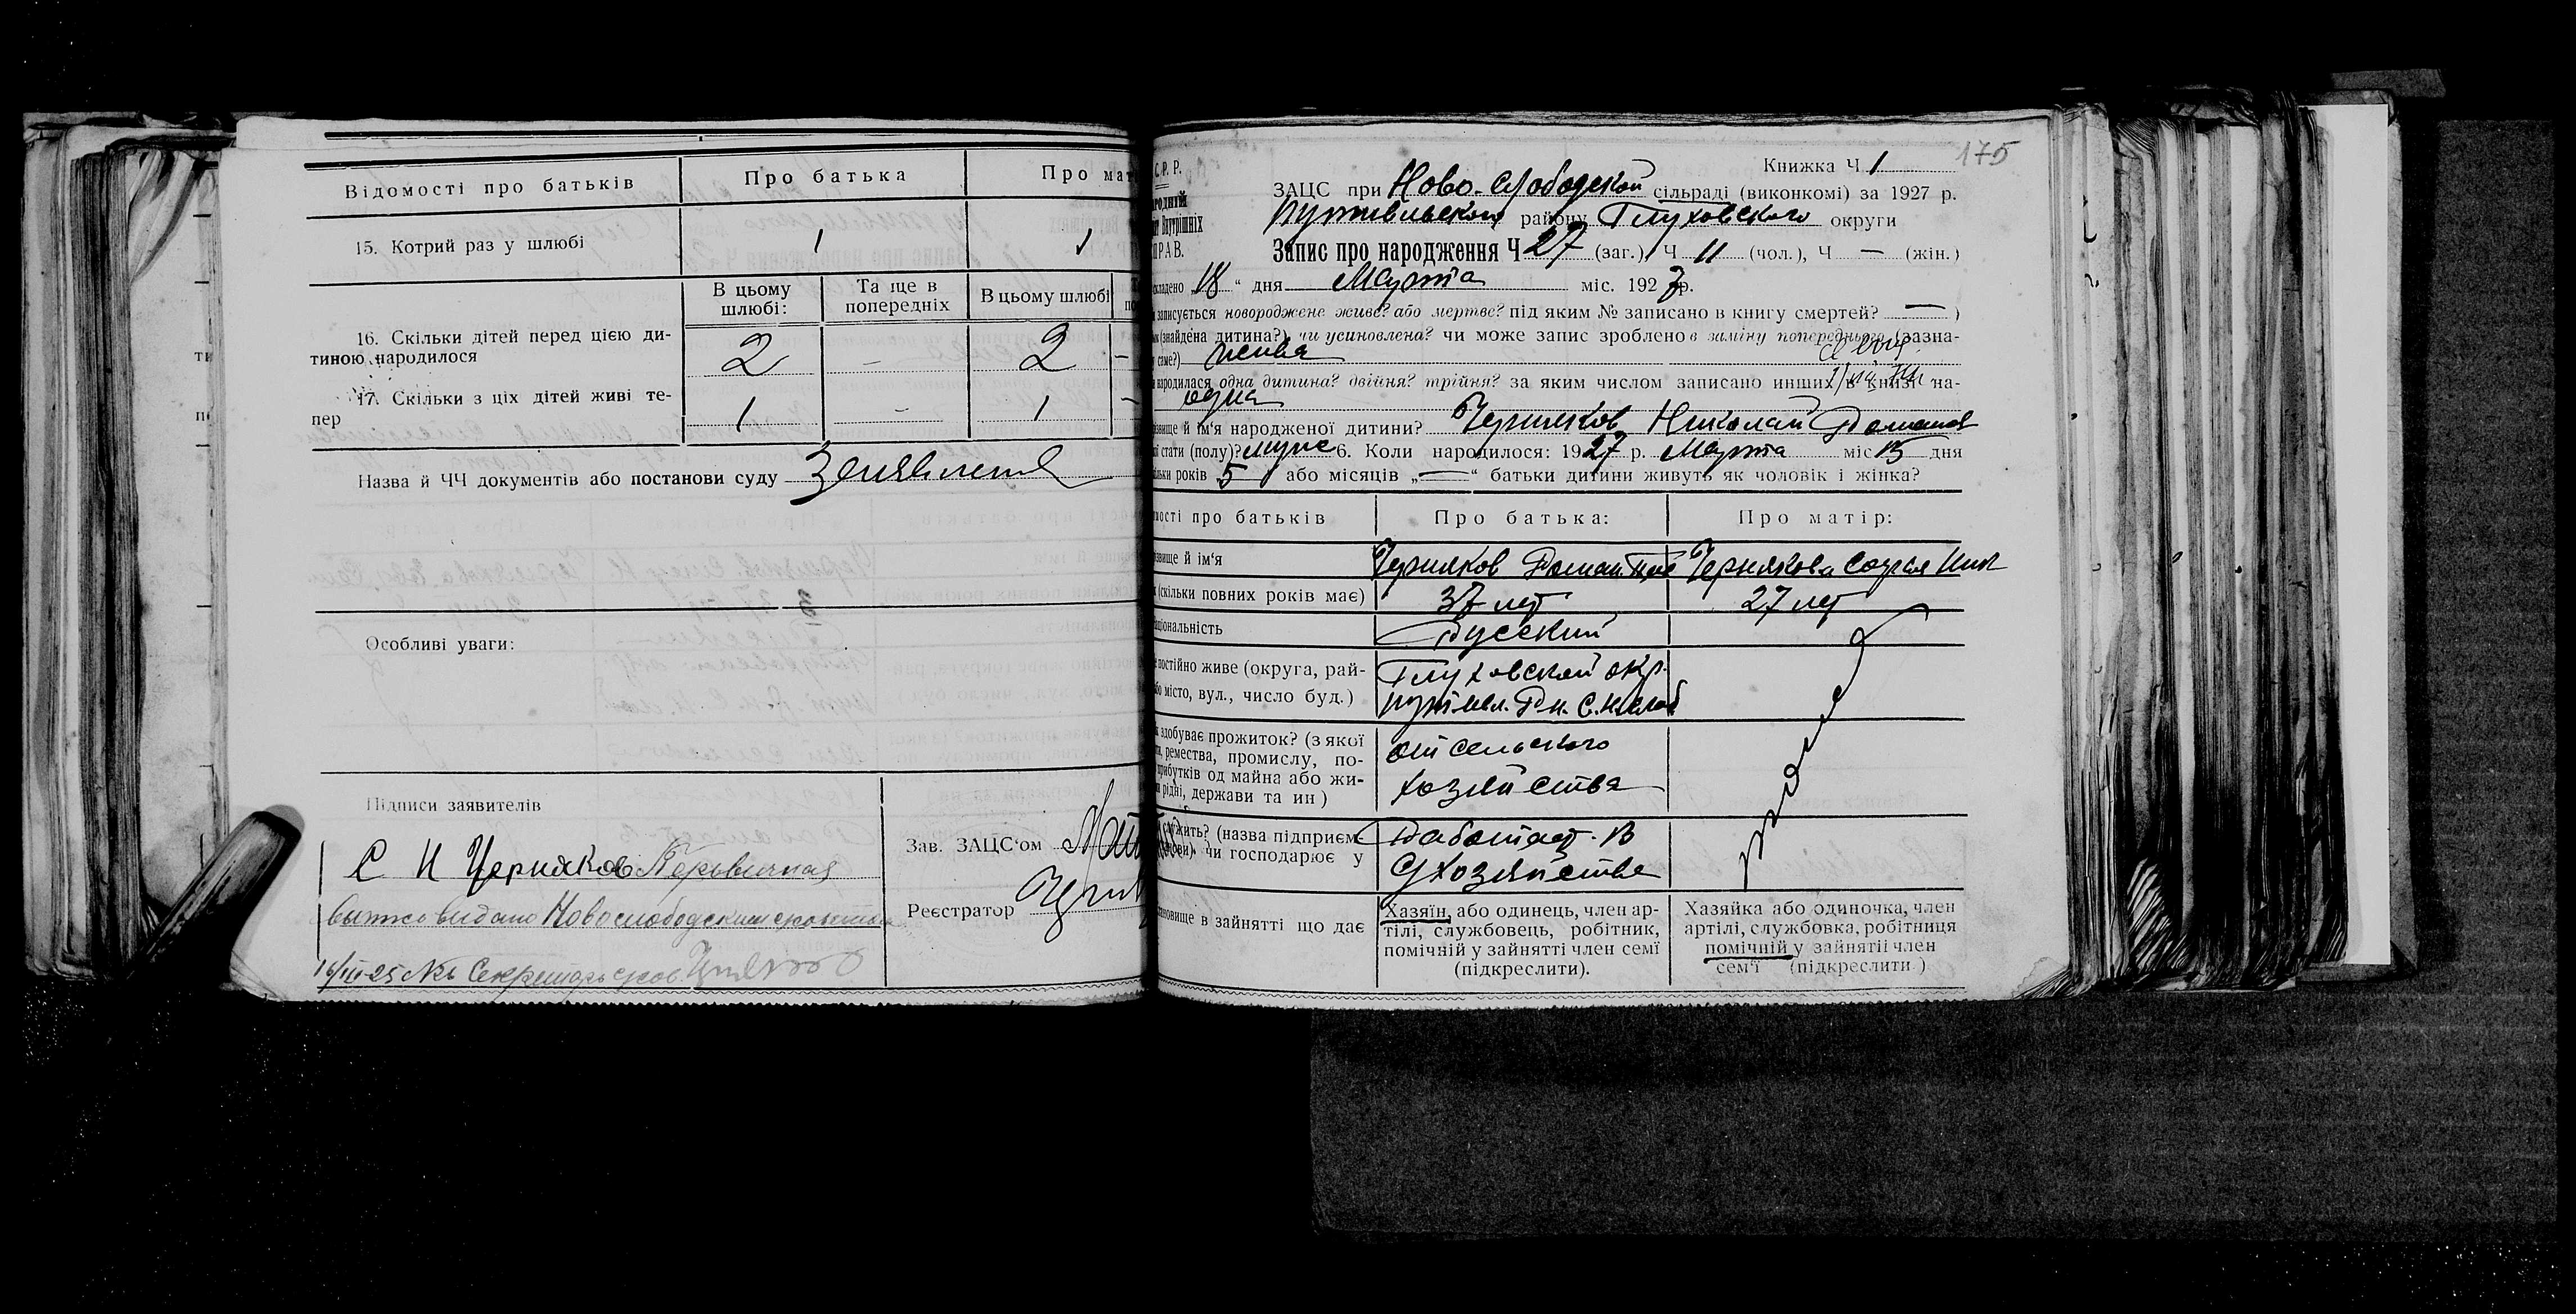 Відомості про батьків
Про батька
Про мат
15. Котрий раз у шлюбі
1
1
В цьому шлюбі:
Та ще в попередніх
В цьому шлюбі
16. Скільки дітей перед цією ди-
тиною народилося
2
—
2
—
17. Скільки з ціх дітей живі те-
пер
1
—
1
—
Назва й ЧЧ документів або постанови суду
Особливі уваги:
Підписи заявителів
С Н Черняков
выдано Новослободским
Секретарь
Зав. ЗАЦС'ом
Реєстратор
175
С.Р.Р.
Книжка Ч 1
ЗАЦС при Ново-Слободской сільраді (виконкомі) за 1927 р.
родній
Путивльского району Глуховского округи
ят Внутрішніх
ПРАВ.
Запис про народження Ч 27 (заг.) Ч 11 (чол.), Ч — (жін.)
кладено 18 " дня Марта міс. 1927 р.
записується новороджене живе? або мертве? під яким № записано в книгу смертей? — )
(знайдена дитина?) чи усиновлена? чи може запис зроблено в заміну попереднього (зазна-
саме?) жива
народилася одна дитина? двійня? трійня? за яким числом записано инших в книзі на-
одна
звище й ім'я народженої дитини? Черняков Николай Роман
стати (полу)? муж 6. Коли народилося: 1927 р. Марта міс 15 дня
ільки років 5 або місяців „—" батьки дитини живуть як чоловік і жінка?
мості про батьків
Про батька:
Про матір:
звище й ім'я
Черняков Роман
Чернякова Софья Ник
(скільки повних років має)
37 лет
27 лет
аціональність
Русский
постійно живе (округа, рай-
або місто, вул., число буд.)
Глуховской окр.
Путивл. Р-н. С. Н Слоб
здобуває прожиток? (з якої
ремества, промислу, по-
прибутків од майна або жи-
рідні, держави та ин)
от сельского
хозяйства
служить? (назва підприєм-
чи господарює у
Работает в
С/хозяйстве
становище в зайнятті що дає
Хазяїн, або одинець, член ар-
тілі, службовець, робітник,
помічній у зайнятті член семї
(підкреслити).
Хазяйка або одиночка, член
артілі, службовка, робітниця
помічній у зайнятіі член
сем'ї (підкреслити)